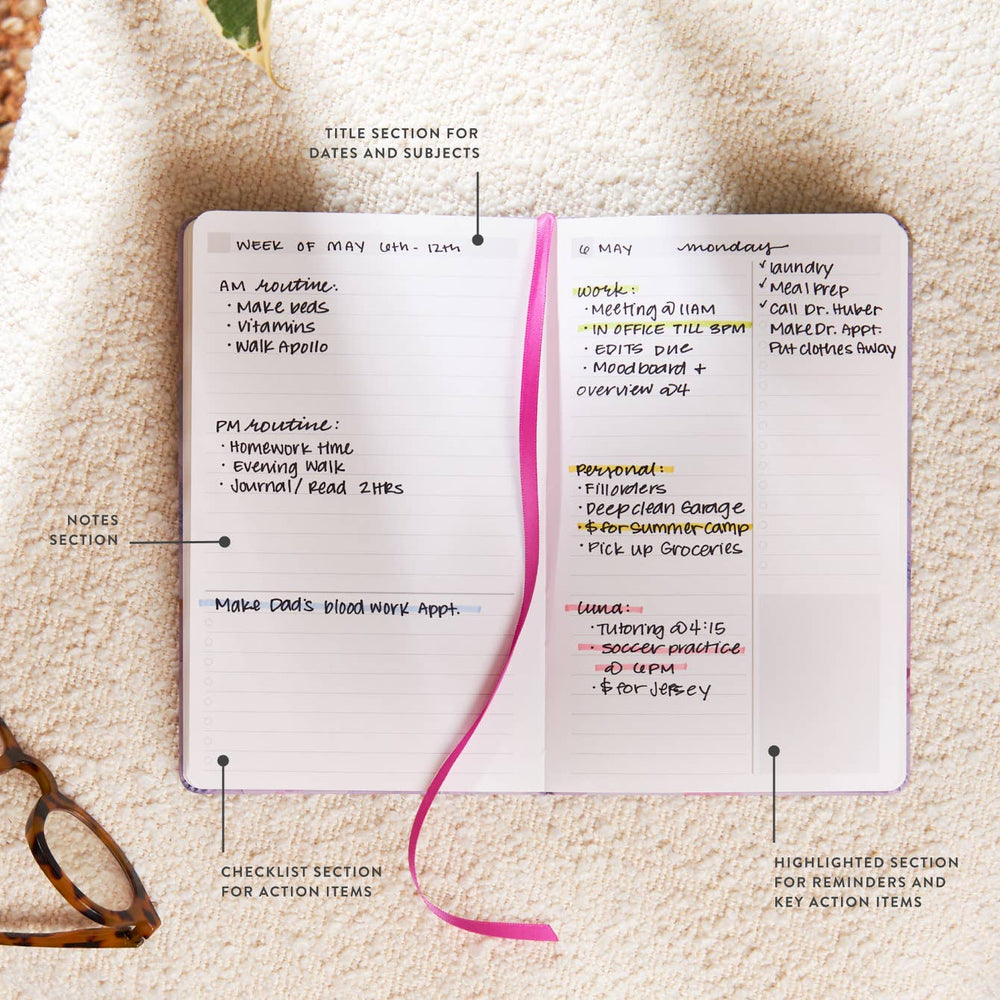 TITLE SECTION FOR
DATES AND SUBJECTS
WEEK OF MAY 6th - 12th
AM routine:
• Make beds
• Vitamins
• Walk Apollo
PM routine:
• Homework time
• Evening Walk
• Journal / Read 2HRS
NOTES
SECTION
Make Dad's blood work Appt.
6 MAY monday
work:
• Meeting @ 11AM
• IN OFFICE TILL 3PM
• EDITS Due
• Moodboard +
overview @4
Personal:
• Fill orders
• Deep clean Garage
• $ for Summer camp
• Pick up Groceries
Luna:
• Tutoring @ 4:15
• soccer practice
@ 6PM
• $ for Jersey
✓ laundry
✓ Meal Prep
✓ Call Dr. Huber
Make Dr. Appt.
Put clothes Away
CHECKLIST SECTION
FOR ACTION ITEMS
HIGHLIGHTED SECTION
FOR REMINDERS AND
KEY ACTION ITEMS